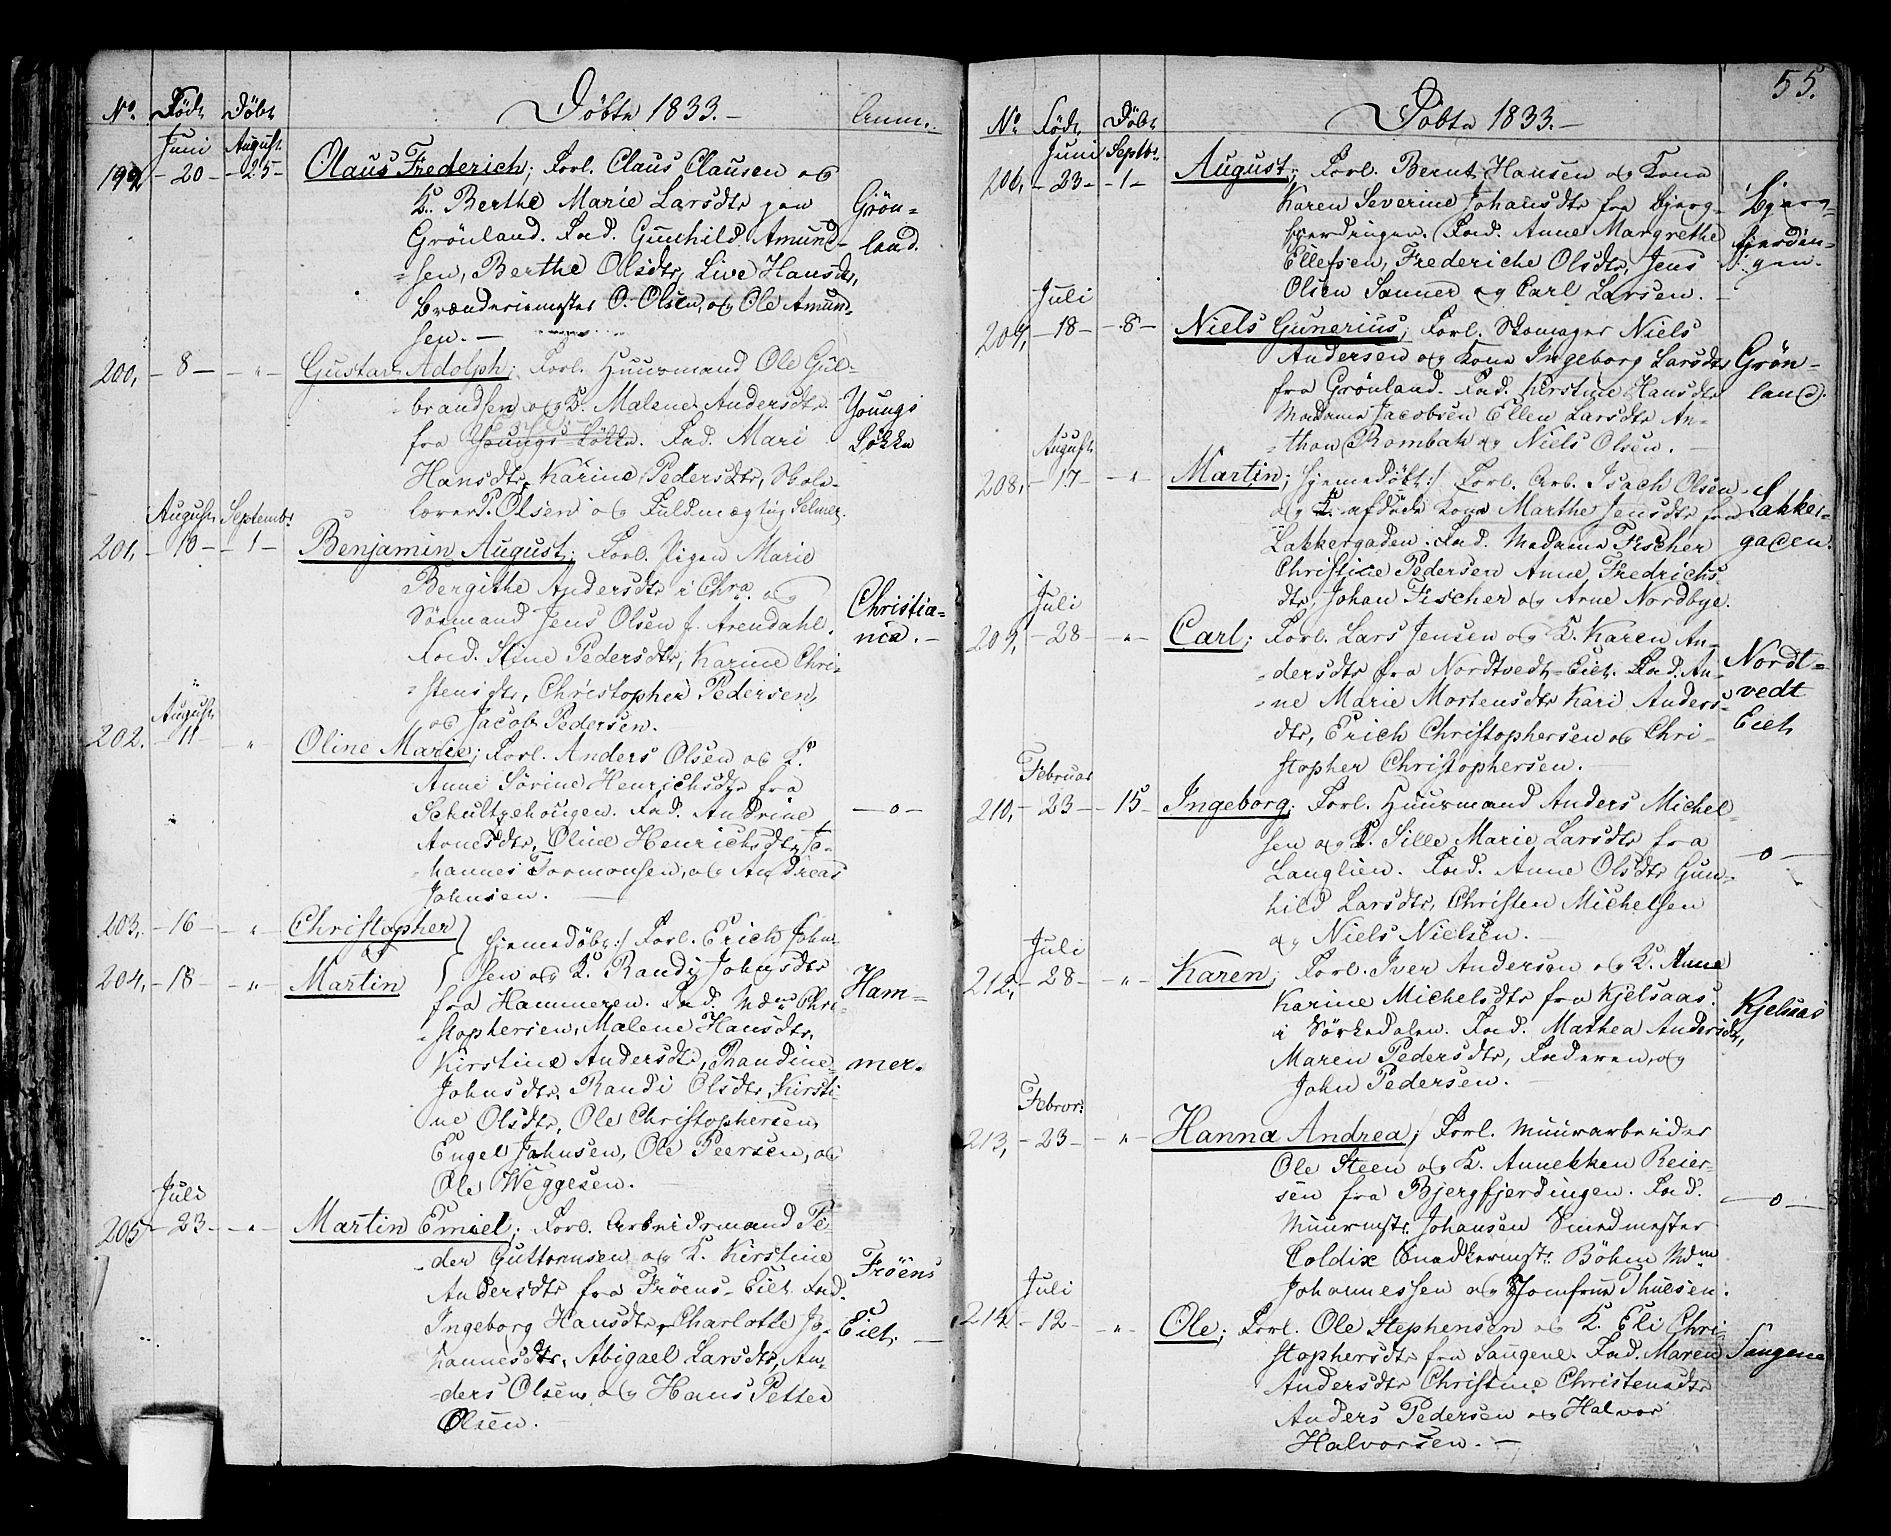 No. Født Døbt Døbte 1833.- Anm.
Juni August
199, -20- -25- Olaus Frederich; Forl. Claus Clausen og
K. Berthe Marie Larsdtr paa Grøn-
Grönland. Fad. Gunhild Amund- land.
-sen, Berthe Olsdtr, Live Hansdtr,
Brænderiemester O. Olsen, og Ole Amun-
sen.-
200, -8- -"- Gustav Adolph; Forl. Huusmand Ole Gul-
brandsen og K. Malene Andersdtr Youngs
fra Youngs Løkke. Fad. Mari Løkke
Hansdtr, Karine Pedersdtr, Skole-
lærer P. Olsen og Fuldmægtig Selmer.
August Septembr
201, -10- -1- Benjamin August; Forl. Pigen Marie
Bergithe Andersdtr i Chra. og Christia-
Sömand Jens Olsen f. Arendahl. nia.-
Fad. Stine Pedersdtr, Karine Chri-
-stensdtr, Christopher Pedersen,
og Jacob Pedersen.
August
202. -11 " Oline Marie; Forl. Anders Olsen og K.
Anne Sörine Henrichsdtr fra
Schultzehougen. Fad. Andrine —o—
Arnesdtr, Oline Henrichsdtr, Jo-
-hannes Tormonsen, og Andreas
Johnsen.
203, -16- -"- Christopher } hjemedöbt:/ Forl. Erich John-
og
204, -18- -"- Martin } sen og K. Randi Johnsdtr
fra Hammeren. Fad. Mdme Chri- Ham-
-stophersen, Malene Hansdtr,
Kirstine Andersdtr, Randine mer-
Johnsdtr, Randi Olsdtr, Kirsti-
ne Olsdtr, Ole Christophersen,
Engel Johnsen, Ole Peersen, og
Ole Weggesen.
Juli
205 -23- -"- Martin Emiel; Forl. Arbeidsmand Pe-
-der Guttormsen og K. Kirstine Fröens
Andersdtr fra Fröens-Eiet. Fad.
Ingeborg Hansdtr, Charlotte Jo- Eiet.-
hannesdtr, Abigael Larsdtr, An-
-ders Olsen, og Hans Petter
Olsen.
55.
No. Födt Döbt Döbte 1833.-
Juni Septbr.
206, -23- -1- August; Forl. Bernt Hansen og Kone
Karen Severine Johansdtr fra Bjerg- Bjerg-
fjerdingen. Fad. Anne Margrethe fjerdin-
Ellefsen, Frederiche Olsdtr, Jens gen.
Olsen Sanner og Carl Larsen.
Juli
207, -18- -8- Niels Gunerius; Forl. Skomager Niels
Andersen og Kone Ingeborg Larsdtr Grön-
fra Grönland. Fad. Kirstine Hansdtr land.
Madame Jacobsen Ellen Larsdtr An-
-thon Rombah og Niels Olsen.
August
208, -17- -"- Martin; hjemedöbt:/ Forl. Arb. Isach Olsen
og afdöde Kone Marthe Jensdtr fra Lakker-
Lakkergaden. Fad. Madame Fischer gaden.
Christine Pedersen Anne Fredrichs-
dtr, Johan Fischer og Arne Nordbye.
Juli
209, -28- -"- Carl; Forl. Lars Jensen og K. Karen An-
-dersdtr fra Nordtvedt-Eiet. Fad. An- Nordt-
-ne Marie Mortensdtr Kari Anders- vedt
dtr, Erich Christophersen og Chri- Eiet
stopher Christophersen.
Februar
210, -23- -15- Ingeborg; Forl. Huusmand Anders Michel-
sen og K. Sille Marie Larsdtr fra
Langlien. Fad. Anne Olsdtr Gun- —o—
hild Larsdtr, Christen Michelsen
og Niels Nielsen.
Juli
212, -28- -"- Karen; Forl. Iver Andersen og K. Anne
Karine Michelsdtr fra Kjelsaas Kjelsaas
i Sörkedalen. Fad. Mathea Andersdtr,
Maren Pedersdtr, Faderen, og
John Pedersen.
Febror.
213, -23- -"- Hanna Andrea; Forl. Muurarbeider
Ole Steen og K. Annekken Reier-
sen fra Bjergfjerdingen. Fad. —o—
Muurmstr. Johansen Smedmester
Coldix Snedkermstr. Böhm Mdm
Johannessen og Jomfrue Thuesen.
Juli
214 -12- -"- Ole; Forl. Ole Stephensen og K. Eli Chri-
stophersdtr fra Saugene. Fad. Maren Saugene
Andersdtr Christine Christensdtr
Anders Pedersen og Halvor
Halvorsen.-